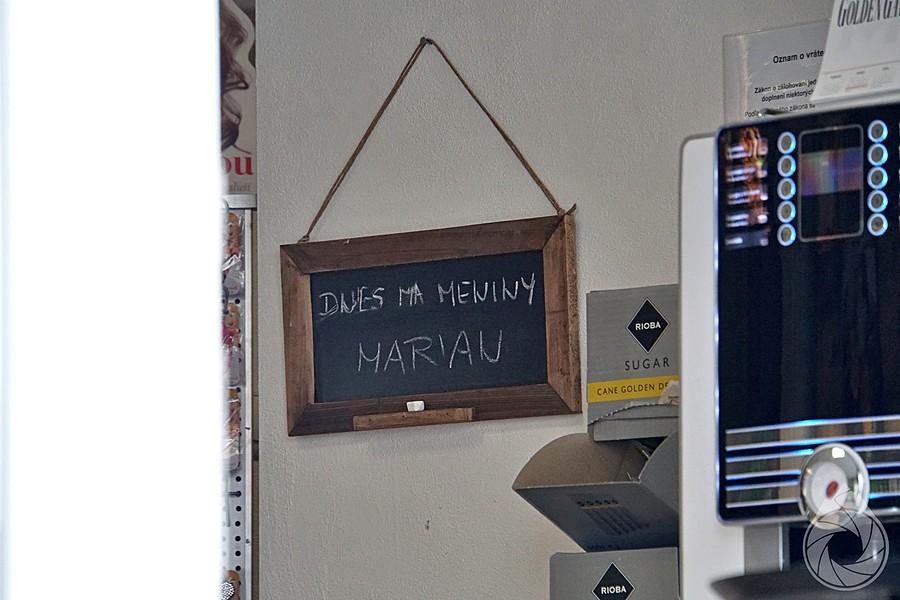 DNES MA MENINY
MARIAN
GOLDEN GA
Oznam o vráte
Zákon o zálohovaní jed
doplnení niektorých
RIOBA
SUGAR
CANE GOLDEN DE
RIOBA
ou